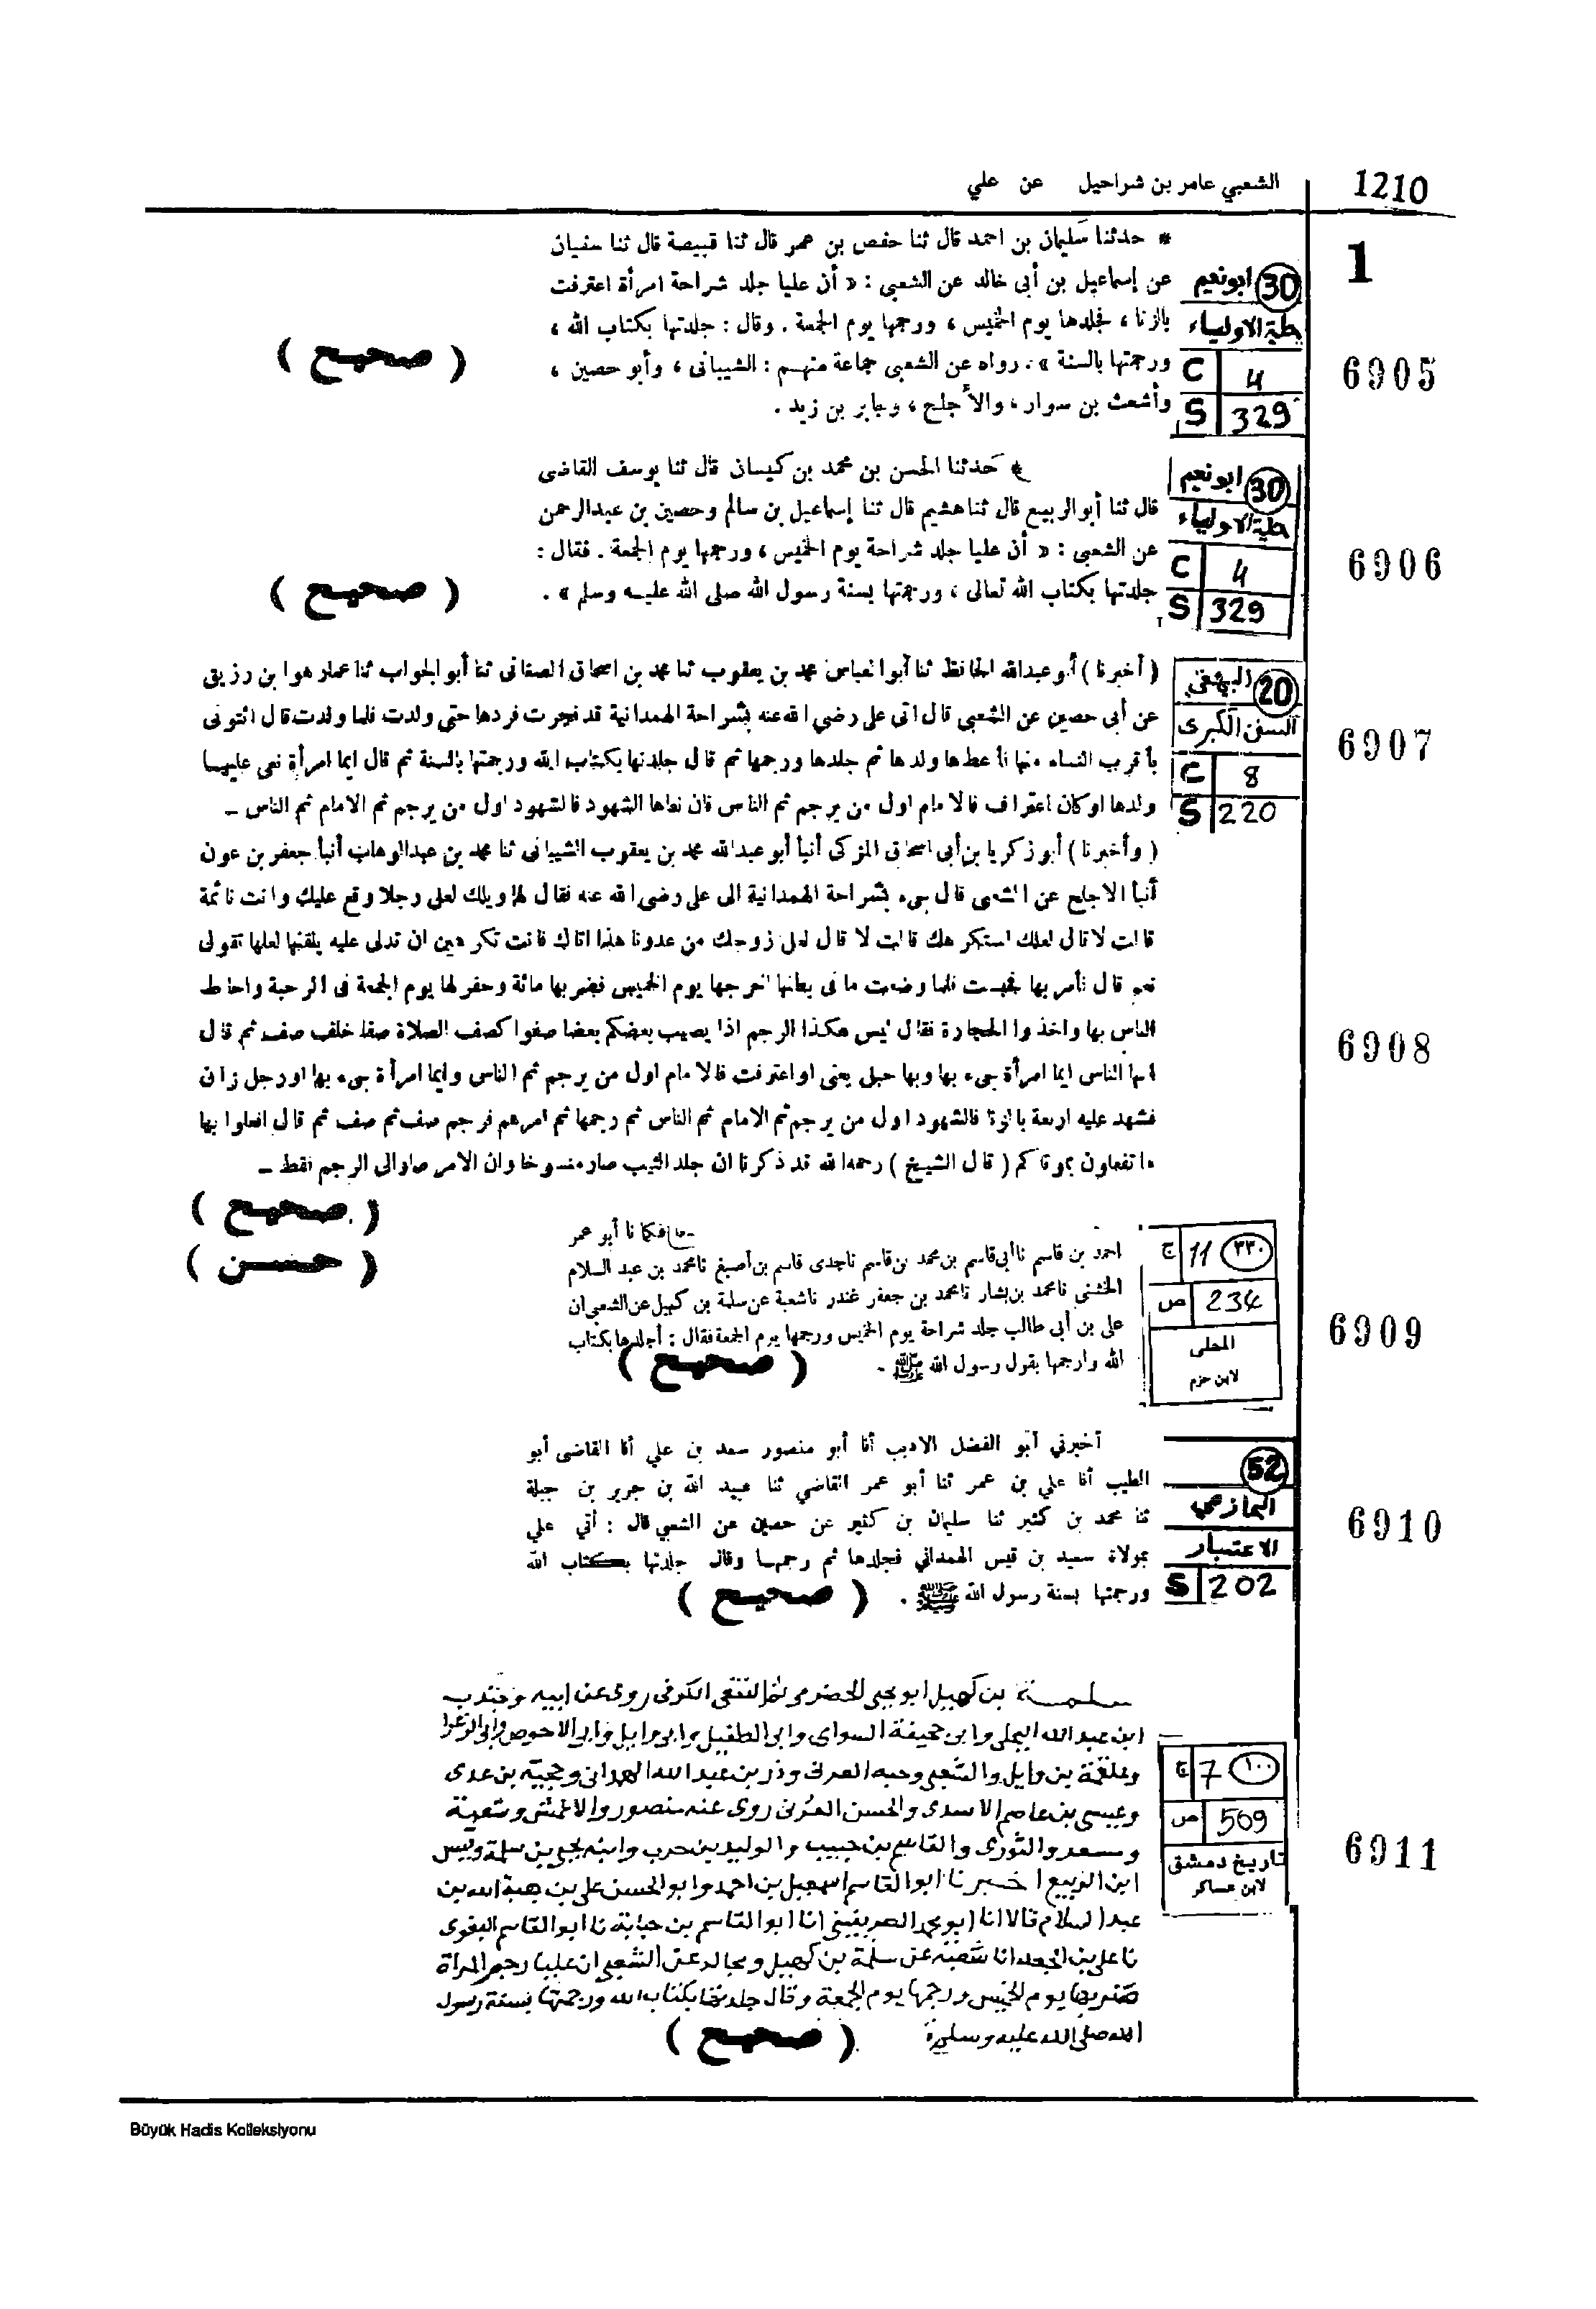 1210
الشعبي عامر بن شراحيل عن علي
1
* حدثنا سليمان بن احمد قال ثنا حفص بن عمر قال ثنا قبيصة قال ثنا سفيان
عن إسماعيل بن أبي خالد عن الشعبي : « أن عليا جلد شراحة امرأة اعترفت
بالزنا ، فجلدها يوم الخميس ، ورجمها يوم الجمعة . وقال : جلدتها بكتاب الله ،
ورجمتها بالسنة » . رواه عن الشعبي جماعة منهم : الشيبانى ، وأبو حصين ،
وأشعث بن سوار ، والأجلح ، وجابر بن زيد .
( صحيح )
30 ابونعيم
حلية الاولياء
C 4
S 329
6905
* حدثنا الحسن بن محمد بن كيسان قال ثنا يوسف القاضى
قال ثنا أبو الربيع قال ثنا هشيم قال ثنا إسماعيل بن سالم وحصين بن عبدالرحمن
عن الشعبى : « أن عليا جلد شراحة يوم الخميس ، ورجمها يوم الجمعة . فقال :
جلدتها بكتاب الله تعالى ، ورجمتها بسنة رسول الله صلى الله عليه وسلم » .
( صحيح )
30 ابو نعيم
حلية الاولياء
C 4
S 329
6906
( أخبرنا ) أبو عبدالله الحافظ ثنا أبو العباس محمد بن يعقوب ثنا محمد بن اسحاق الصغانى ثنا أبو الجواب ثنا عمار هو ابن رزيق
عن أبى حصين عن الشعبى قال اتى على رضي الله عنه بشراحة الهمدانية قد فجرت فردها حتى ولدت فلما ولدت قال ائتونى
بأقرب النساء منها فأعطها ولدها ثم جلدها ورجمها ثم قال جلدتها بكتاب الله ورجمتها بالسنة ثم قال ايما امرأة نعى عليها
ولدها اوكان اعتراف فالامام اول من يرجم ثم الناس فان نعاها الشهود فالشهود اول من يرجم ثم الامام ثم الناس –
20 البيهقي
السنن الكبرى
C 8
S 220
6907
( وأخبرنا ) أبو زكريا بن أبى اسحاق المزكى أنبأ أبو عبدالله محمد بن يعقوب الشيبانى ثنا محمد بن عبدالوهاب أنبأ جعفر بن عون
أنبأ الاجلح عن الشعبى قال جىء بشراحة الهمدانية الى على رضى الله عنه فقال لها ويلك لعل رجلا وقع عليك وانت نائمة
قالت لا قال لعلك استكرهك قالت لا قال لعل زوجك من عدونا هذا اتاك فانت تكرهين ان تدلى عليه يلقنها لعلها تقولى
نعم قال فأمر بها فحبست فلما وضعت ما فى بطنها اخرجها يوم الخميس فضربها مائة وحفر لها يوم الجمعة فى الرحبة واحاط
الناس بها واخذوا الحجارة فقال ليس هكذا الرجم اذا يصيب بعضكم بعضا صفوا كصف الصلاة صفا خلف صف ثم قال
ايها الناس ايما امرأة جىء بها وبها حبل يعنى او اعترفت فالامام اول من يرجم ثم الناس وايما امرأة جىء بها اورجل زان
فشهد عليه اربعة بالزنا فالشهود اول من يرجم ثم الامام ثم الناس ثم رجمها ثم امرهم فرجم صف ثم صف ثم قال افعلوا بها
ما تفعلون بموتاكم ( قال الشيخ ) رحمه الله قد ذكرنا ان جلد الثيب صار منسوخا وان الامر صار الى الرجم فقط –
( صحيح )
( حسن )
6908
فكما نا أبو عمر
احمد بن قاسم نا أبى قاسم بن محمد بن قاسم نا جدى قاسم بن أصبغ نا محمد بن عبد السلام
الخشنى نا محمد بن بشار نا محمد بن جعفر غندر نا شعبة عن سلمة بن كهيل عن الشعبى ان
على بن أبى طالب جلد شراحة يوم الخميس ورجمها يوم الجمعة فقال : أجلدها بكتاب
الله وارجمها بقول رسول الله ﷺ .
( صحيح )
٣٣٠ 11 ج
234 ص
المحلى
لابن حزم
6909
أخبرني أبو الفضل الاديب أنا أبو منصور سعد بن علي أنا القاضى أبو
الطيب أنا علي بن عمر ثنا أبو عمر القاضي ثنا عبيد الله بن جرير بن جبلة
ثنا محمد بن كثير ثنا سليمان بن كثير عن حصين عن الشعبي قال : أتي علي
بمولاة سعيد بن قيس الهمداني فجلدها ثم رجمها وقال جلدتها بكتاب الله
ورجمتها بسنة رسول الله ﷺ .
( صحيح )
52
الحازمي
الاعتبار
S 202
6910
سلمة بن كهيل ابو يحيى الحضرمي الكوفى روى عن ابيه وجندب
ابن عبد الله البجلى وابى جحيفة السواى وابى الطفيل وابى وايل وابى الاحوص وابى الزعرا
وعلقمة بن وايل والشعبى وحبه العرنى وذر بن عبد الله الهمدانى وحجية بن عدى
وعيسى بن عاصم الاسدى والحسن العرنى روى عنه منصور والاعمش وشعبة
ومسعر والثورى والقاسم بن حبيب والوليد بن حرب وابنه يحيى بن سلمة وقيس
ابن الربيع اخبرنا ابو القاسم اسمعيل بن احمد وابو الحسن على بن هبة الله بن
عبد السلام قالا انا ابو محمد الصريفينى انا ابو القاسم بن حبابة نا ابو القاسم البغوى
نا على بن الجعد انا شعبة عن سلمة بن كهيل ومجالد عن الشعبى ان عليا رجم المراة
ضربها يوم الخميس ورجمها يوم الجمعة وقال جلدتها بكتاب الله ورجمتها بسنة رسول
الله صلى الله عليه وسلم
( صحيح )
١٠٠ 7 ج
509 ص
تاريخ دمشق
لابن عساكر
6911
Büyük Hadis Kolleksiyonu